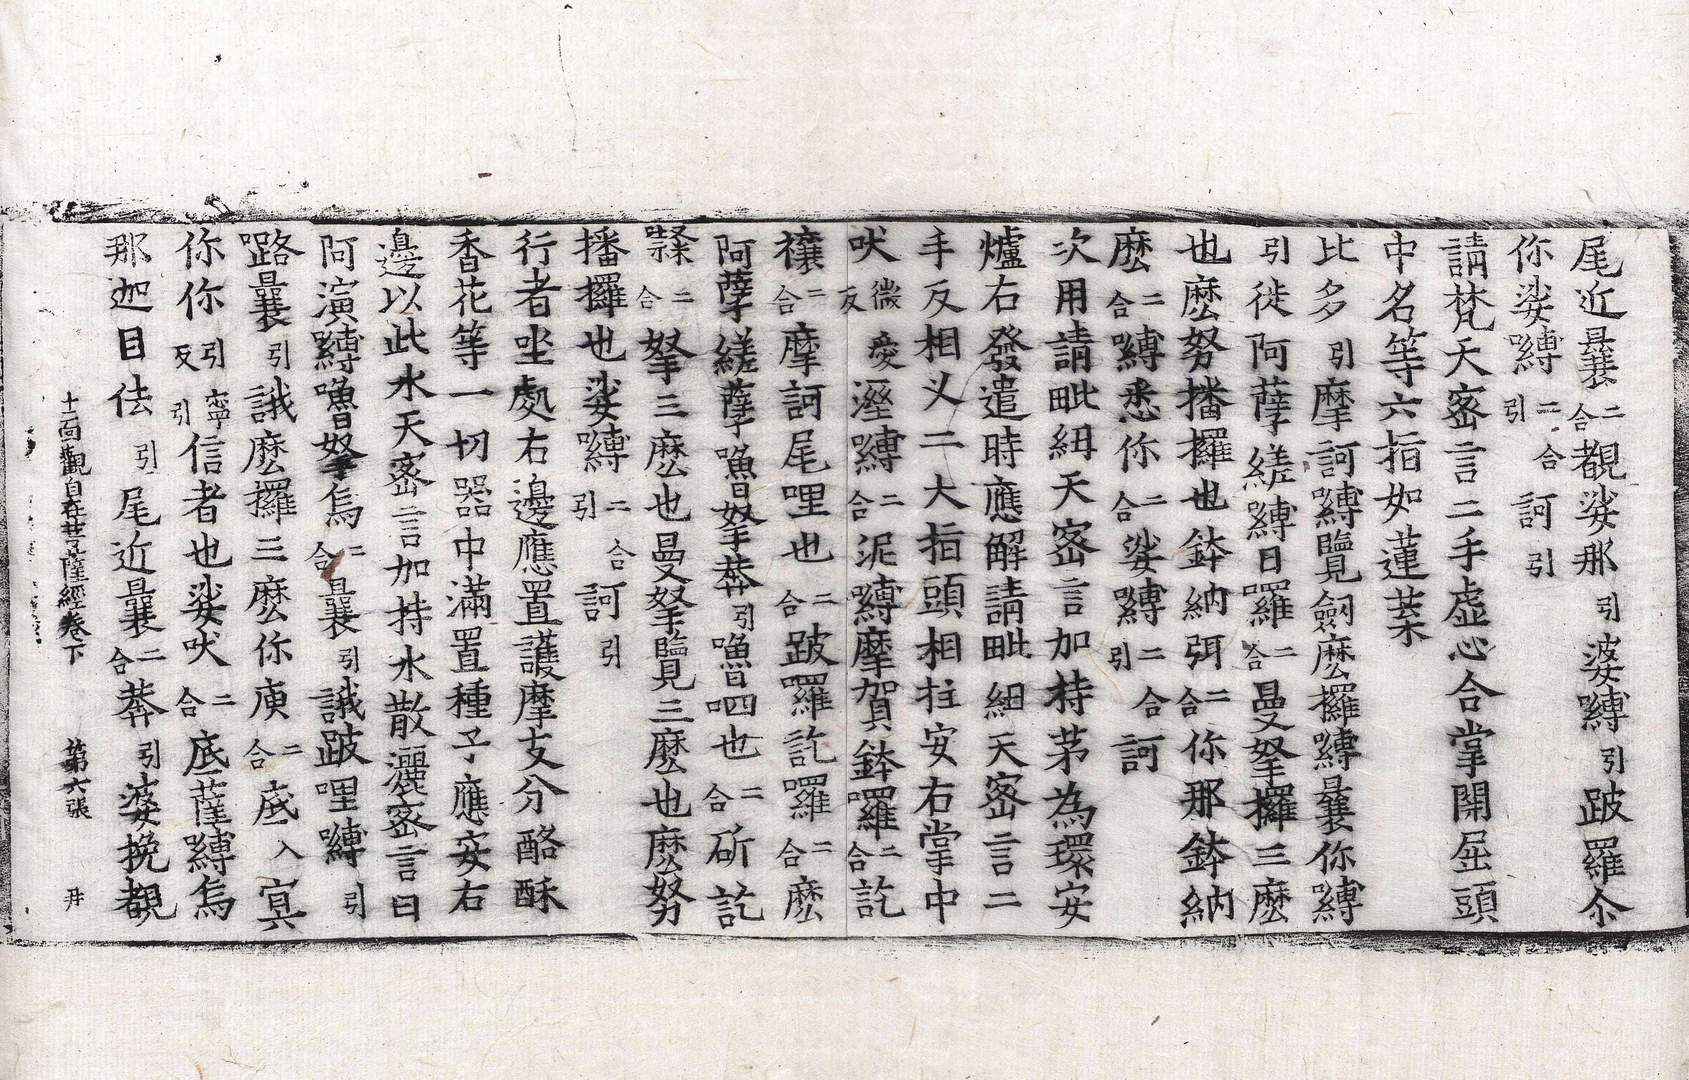 尾近曩二合覩娑那引婆嚩引跛羅尒
你娑嚩二合引訶引
請梵天密言二手虛心合掌開屈頭
中名等六指如蓮葉
比多引摩訶嚩覽劒麽攞嚩曩你嚩
引徙阿孽縒嚩日囉二合曼拏攞三麽
也麽努播攞也鉢納弭二合你那鉢納
麽二合嚩悉你二合娑嚩二合引訶
次用請毗紐天密言加持茅為環安
爐右發遣時應解請毗紐天密言二
手反相叉二大指頭相拄安右掌中
吠微愛反溼嚩二合泥嚩摩賀鉢囉二合訖
穰二合摩訶尾哩也二合跛囉訖囉二合麽
阿孽縒孽嚕拏莽引嚕呬也二合斫訖
㘑二合拏三麽也曼拏覽三麽也麽努
播攞也娑嚩二合引訶引
行者坐處右邊應置護摩支分酪酥
香花等一切器中滿置種子應安右
邊以此水天密言加持水散灑密言曰
阿演嚩嚕拏烏二合曩引誐跛哩嚩引
路曩引誐麽攞三麽你庾二合底入寘
你你引寧反引信者也娑吠二合底薩嚩烏
那迦目佉引尾近曩二合莽引婆挽覩
十一面觀自在菩薩經卷下 第六張 井